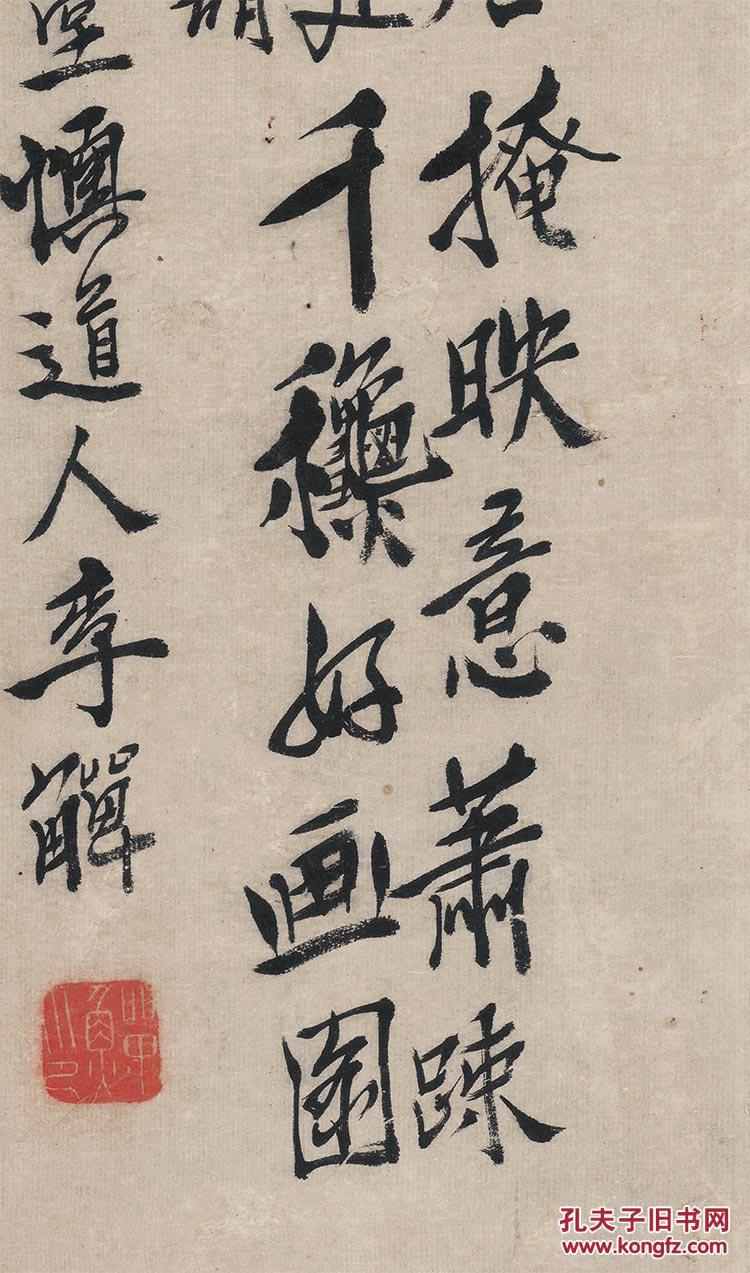 掩映意蕭疎
千龝好画圖
堂懊道人李觶
孔夫子旧书网
www.kongfz.com